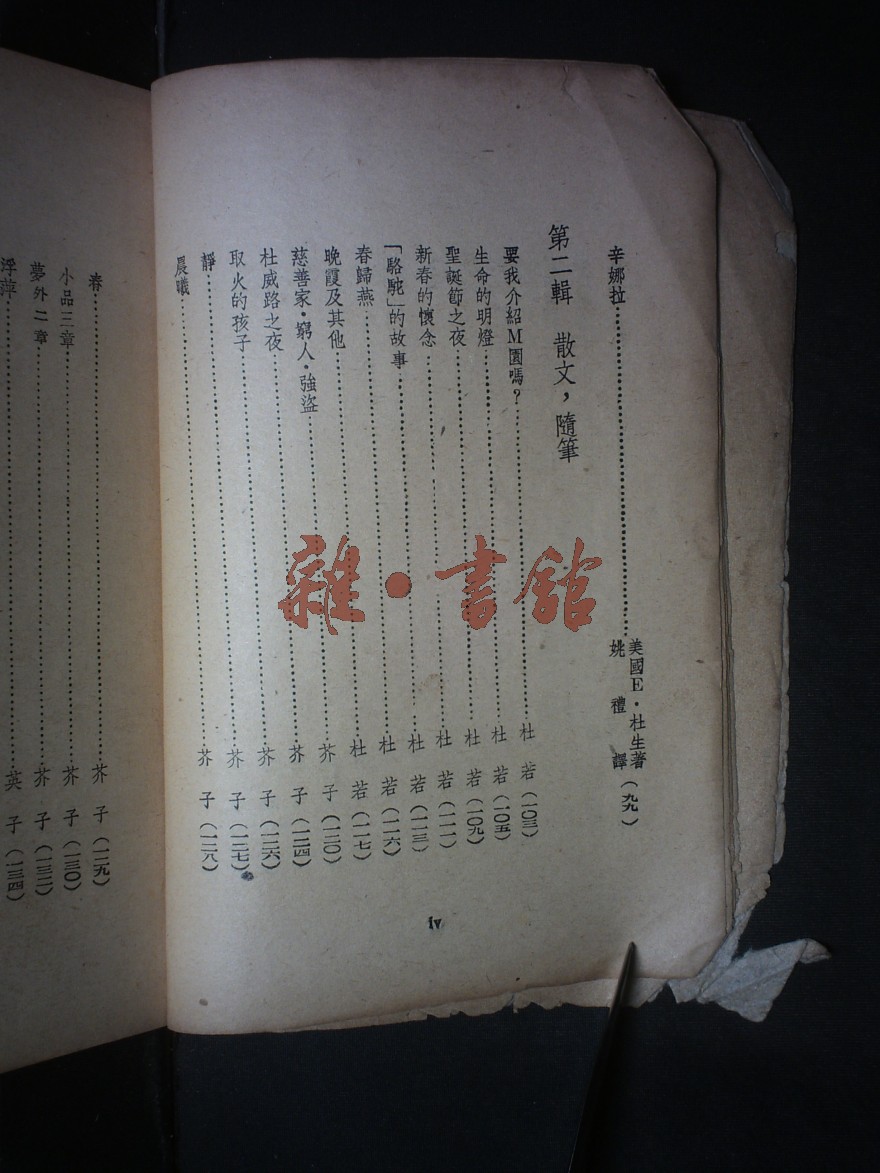 辛娜拉……美國E·杜生著
姚禮譯(九九)
第二輯 散文,隨筆
要我介紹M園嗎?……杜若(一〇三)
生命的明燈……杜若(一〇五)
聖誕節之夜……杜若(一〇九)
新春的懷念……杜若(一一一)
「駱駝」的故事……杜若(一一三)
春歸燕……杜若(一一六)
晚霞及其他……杜若(一一七)
慈善家·窮人·強盜……芥子(一二〇)
杜威路之夜……芥子(一二四)
取火的孩子……芥子(一二六)
靜……芥子(一二七)
晨曦……芥子(一二八)
iv
春……芥子(一二九)
小品三章……芥子(一三〇)
夢外二章……芥子(一三二)
浮萍……英子(一三四)
雜·書館